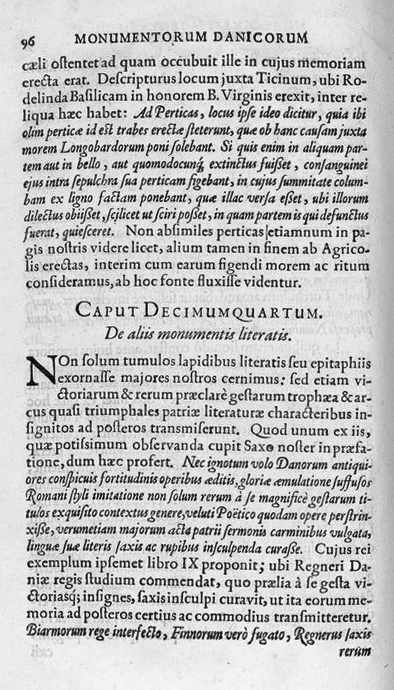 96 MONUMENTORUM DANICORUM
cæli ostentet ad quam occubuit ille in cujus memoriam
erecta erat. Descripturus locum juxta Ticinum, ubi Ro-
delinda Basilicam in honorem B. Virginis erexit, inter re-
liqua hæc habet: Ad Perticas, locus ipse ideo dicitur, quia ibi
olim perticæ id est trabes erectæ steterunt, quæ ob hanc causam juxta
morem Longobardorum poni solebant. Si quis enim in aliquam par-
tem aut in bello, aut quomodocunq; extinctus fuisset, consanguinei
ejus intra sepulchra sua perticam figebant, in cujus summitate colum-
bam ex ligno factam ponebant, quæ illac versa esset, ubi illorum
dilectus obiisset, scilicet ut sciri posset, in quam partem is qui defunctus
fuerat, quiesceret. Non absimiles perticas etiamnum in pa-
gis nostris videre licet, alium tamen in finem ab Agrico-
lis erectas, interim cum earum figendi morem ac ritum
consideramus, ab hoc fonte fluxisse videntur.
CAPUT DECIMUMQUARTUM.
De aliis monumentis literatis.
NOn solum tumulos lapidibus literatis seu epitaphiis
exornasse majores nostros cernimus: sed etiam vi-
ctoriarum & rerum præclarè gestarum trophæa & ar-
cus quasi triumphales patriæ literaturæ characteribus in-
signitos ad posteros transmiserunt. Quod unum ex iis,
quæ potisimum observanda cupit Saxo noster in præfa-
tione, dum hæc profert. Nec ignotum volo Danorum antiqui-
ores conspicuis fortitudinis operibus æditis, gloriæ æmulatione suffusos
Romani styli imitatione non solum rerum à se magnificè gestarum ti-
tulos exquisito contextus genere, veluti Poëtico quodam opere perstrin-
xisse, verumetiam majorum acta patrii sermonis carminibus vulgata,
linguæ suæ literis saxis ac rupibus insculpenda curasse. Cujus rei
exemplum ipsemet libro IX proponit; ubi Regneri Da-
niæ regis studium commendat, quo prælia à se gesta vi-
ctoriasq; insignes, saxis insculpi curavit, ut ita eorum me-
moria ad posteros certius ac commodius transmitteretur.
Biarmorum rege interfecto, Finnorum verò fugato, Regnerus saxis
rerum